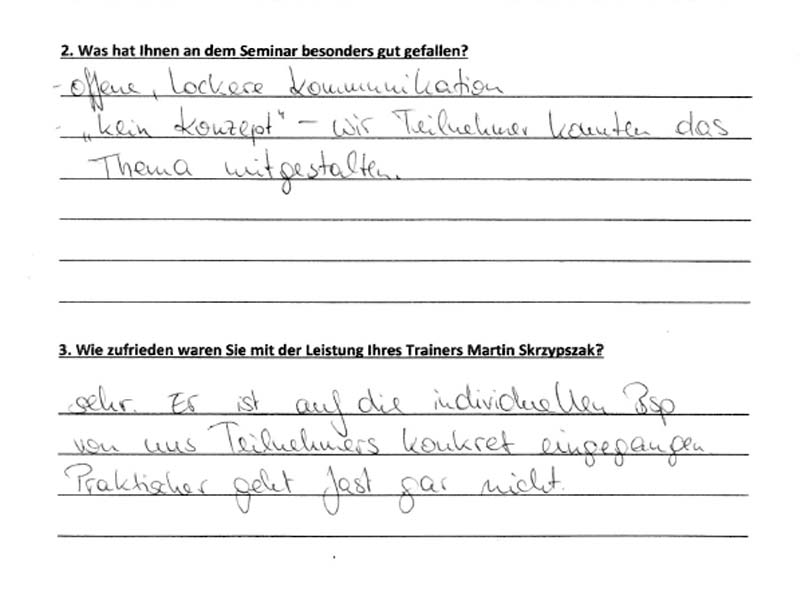 2. Was hat Ihnen an dem Seminar besonders gut gefallen?
- offene, lockere Kommunikation
- „kein Konzept" – wir Teilnehmer konnten das
Thema mitgestalten.
3. Wie zufrieden waren Sie mit der Leistung Ihres Trainers Martin Skrzypszak?
sehr. Er ist auf die individuellen Bsp
von uns Teilnehmers konkret eingegangen.
Praktischer geht fast gar nicht.